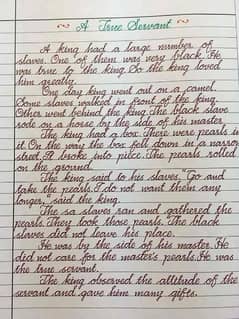 A True Servant
A king had a large number of
slaves. One of them was very black. He
was true to the king. So the king loved
him greatly.
One day king went out on a camel.
Some slaves walked in front of the king.
Other went behind the king. The black slave
rode on a horse by the side of his master.
The king had a box. There were pearls in
it. On the way the box fell down in a narrow
street. It broke into piece. The pearls rolled
on the ground.
The king said to his slaves, "Go and
take the pearls. I do not want them any
longer," said the king.
The sa slaves ran and gathered the
pearls. They took those pearls. The black
slaves did not leave his place.
He was by the side of his master. He
did not care for the master's pearls. He was
the true servant.
The king observed the attitude of the
servant and gave him many gifts.